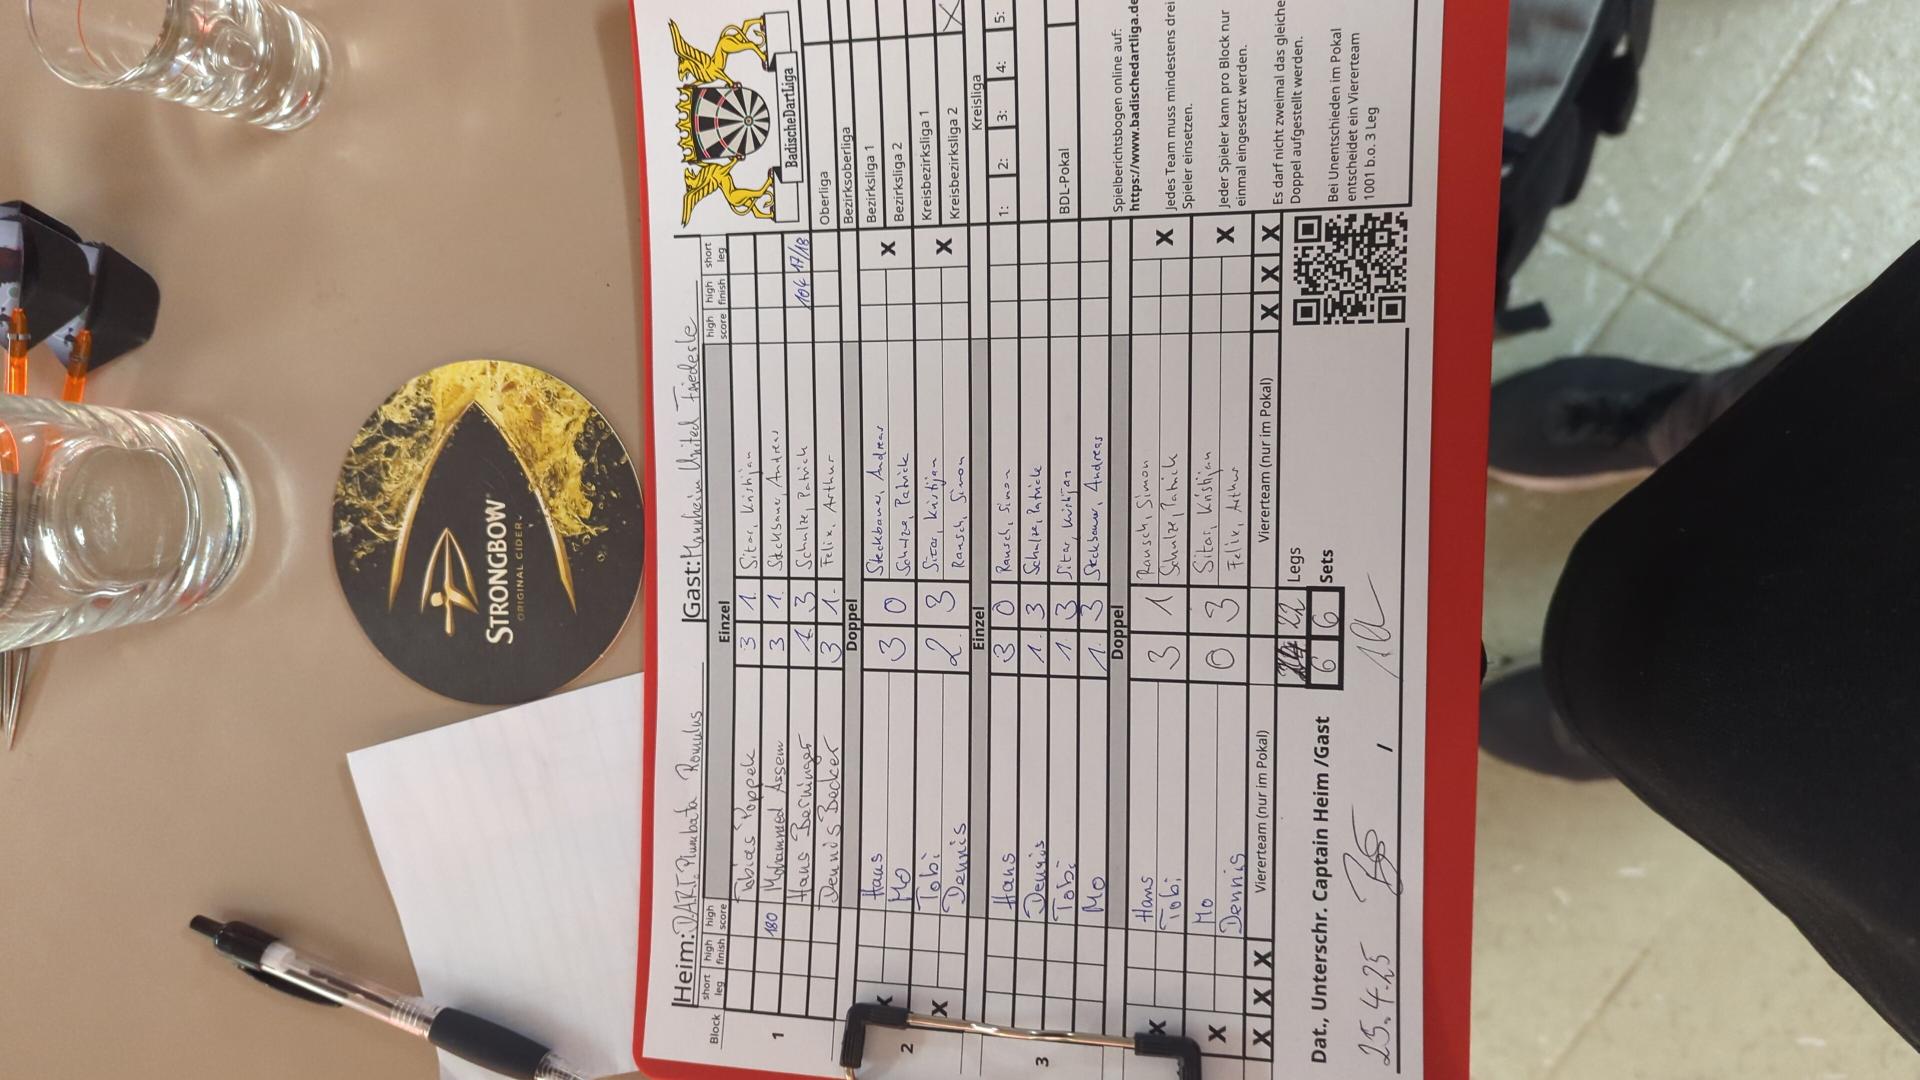 Heim: DART Plumbata Romulus Gast: Mannheim United Friedesle
Block short leg high finish high score Einzel high score high finish short leg
1 Tobias Poppek 3 1 Sitar, Kristijan
180 Mohammed Assem 3 1 Steckbauer, Andreas
Hans Berninger 1 3 Schulze, Patrick 104 17/18
Dennis Becker 3 1 Felix, Arthur
Doppel
2 X Hans 3 0 Steckbauer, Andreas X
Mo Schulze, Patrick
X Tobi 2 3 Sitar, Kristijan X
Dennis Rausch, Simon
Einzel
3 Hans 3 0 Rausch, Simon
Dennis 1 3 Schulze, Patrick
Tobi 1 3 Sitar, Kristijan
Mo 1 3 Steckbauer, Andreas
Doppel
X Hans 3 1 Rausch, Simon X
Tobi Schulze, Patrick
X Mo 0 3 Sitar, Kristijan X
Dennis Felix, Arthur
X X X Viererteam (nur im Pokal) Viererteam (nur im Pokal) X X X
22 Legs
6 6 Sets
Dat., Unterschr. Captain Heim /Gast
25.4.25
BadischeDartLiga
Oberliga
Bezirksoberliga
Bezirksliga 1
Bezirksliga 2
Kreisbezirksliga 1
Kreisbezirksliga 2 X
Kreisliga
1: 2: 3: 4: 5:
BDL-Pokal
Spielberichtsbogen online auf:
https://www.badischedartliga.de
Jedes Team muss mindestens drei
Spieler einsetzen.
Jeder Spieler kann pro Block nur
einmal eingesetzt werden.
Es darf nicht zweimal das gleiche
Doppel aufgestellt werden.
Bei Unentschieden im Pokal
entscheidet ein Viererteam
1001 b.o. 3 Leg
STRONGBOW
ORIGINAL CIDER